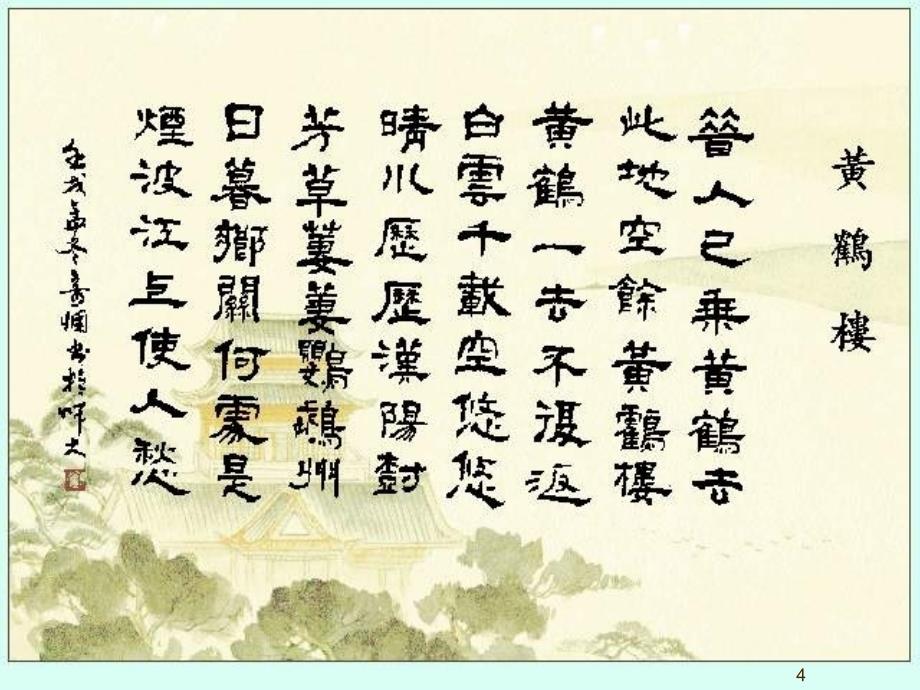 黃鶴樓
昔人已乘黃鶴去
此地空餘黃鶴樓
黃鶴一去不復返
白雲千載空悠悠
晴川歷歷漢陽樹
芳草萋萋鸚鵡州
日暮鄉關何處是
煙波江上使人愁
壬戌孟冬書於師大
4